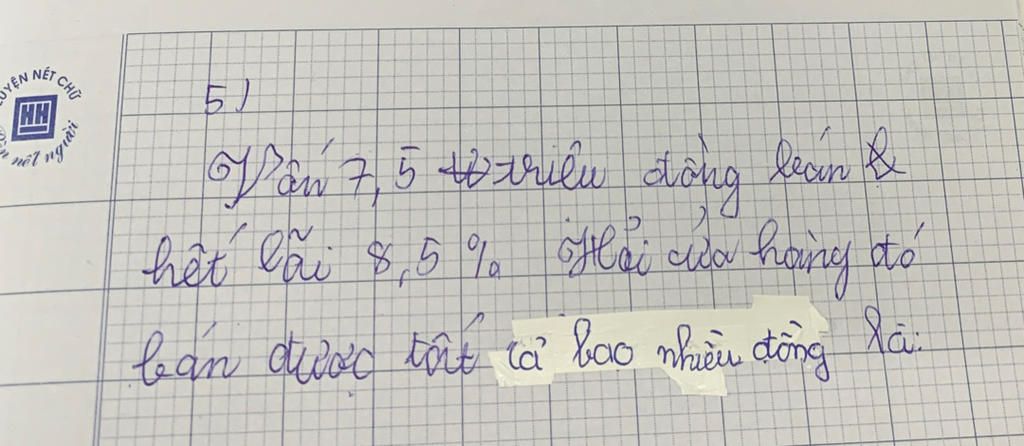 LUYỆN NÉT CHỮ
HH
nết người
5)
Vốn 7,5 triệu đồng bán
hết lãi 8,5 % Hỏi cửa hàng đó
bán được tất cả bao nhiêu đồng là: